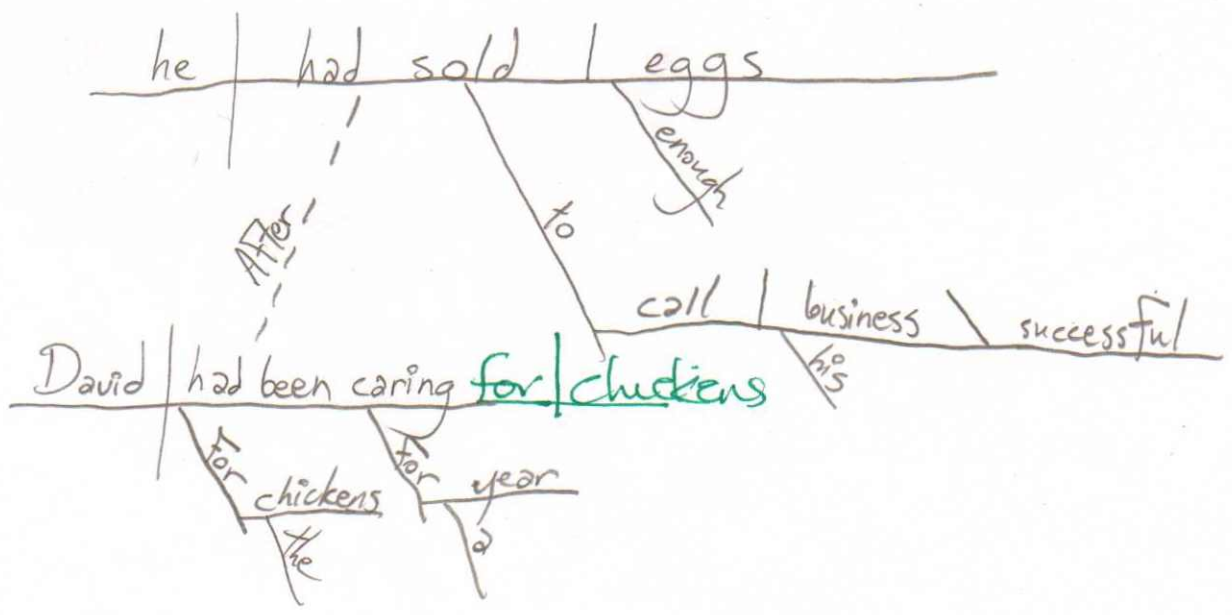 he had sold eggs
enough
to
After
call business successful
his
David had been caring for chickens
for for
chickens year
the a